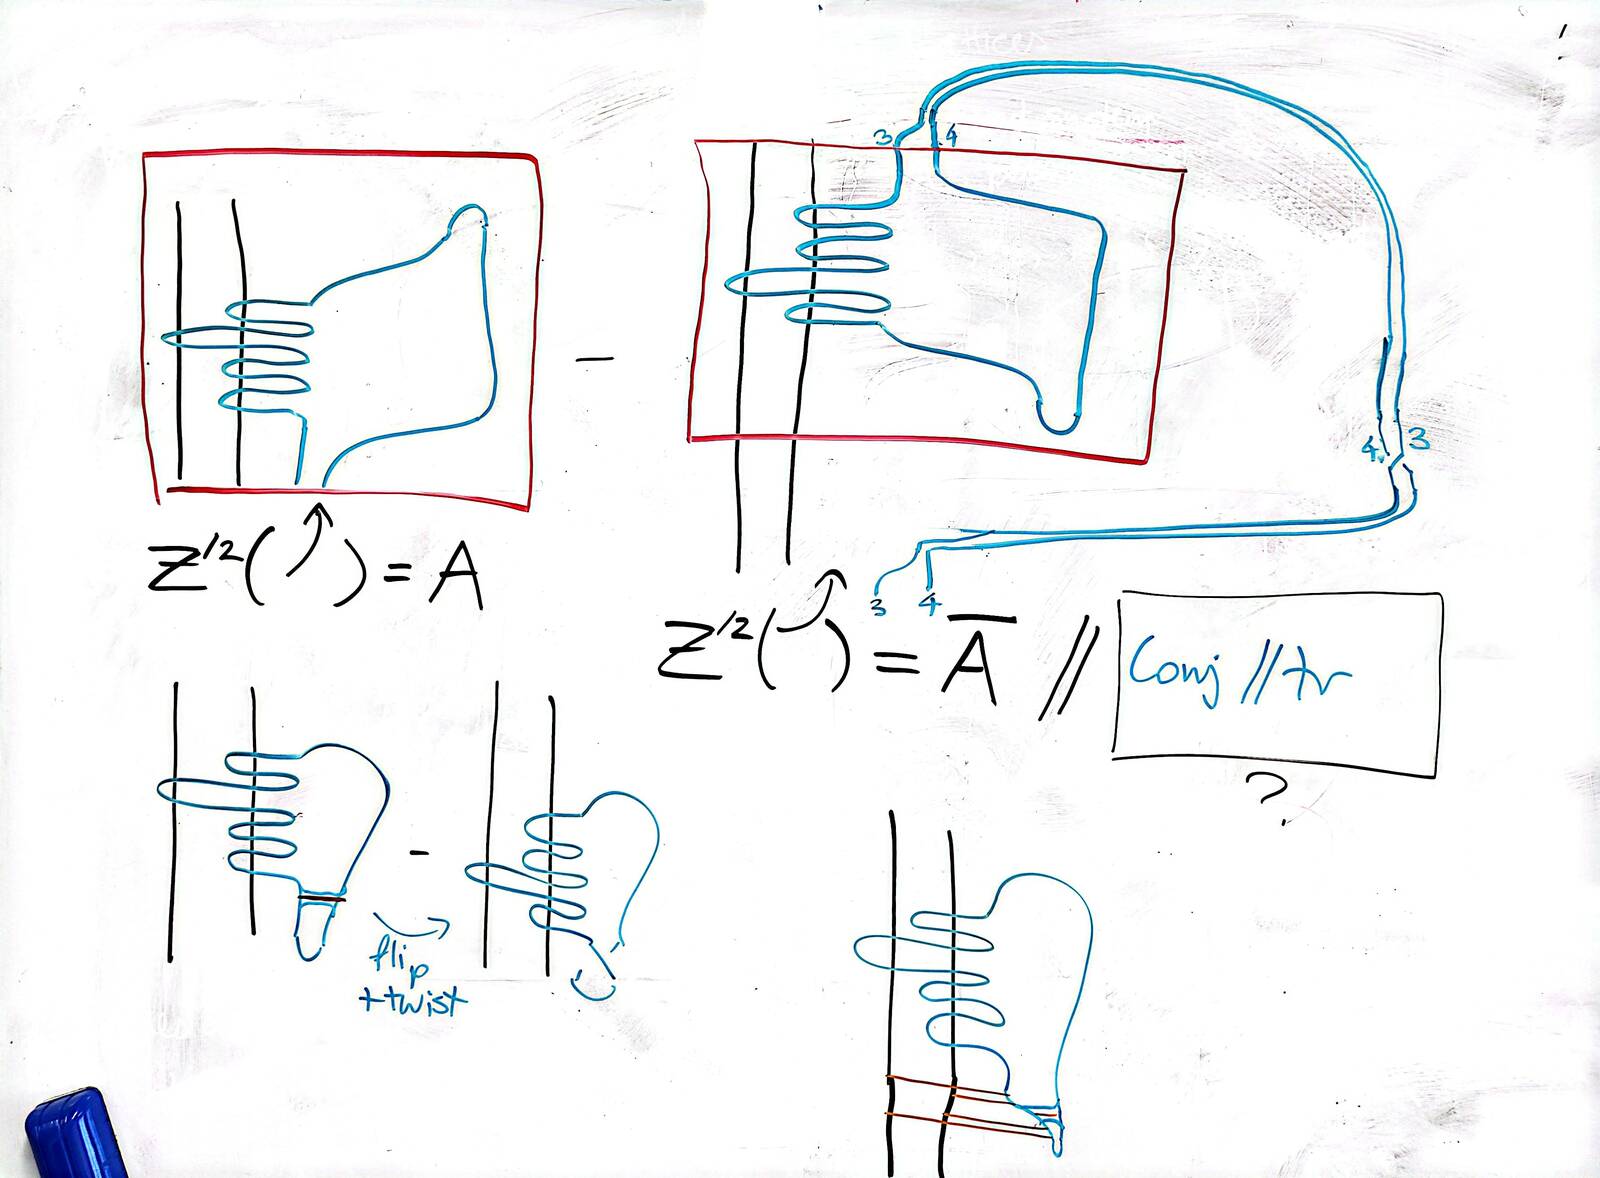 3 4
4 3
3 4
Z^{1/2}( ) = A
Z^{1/2}( ) = \overline{A} // Conj // tr
?
-
-
flip
+twist